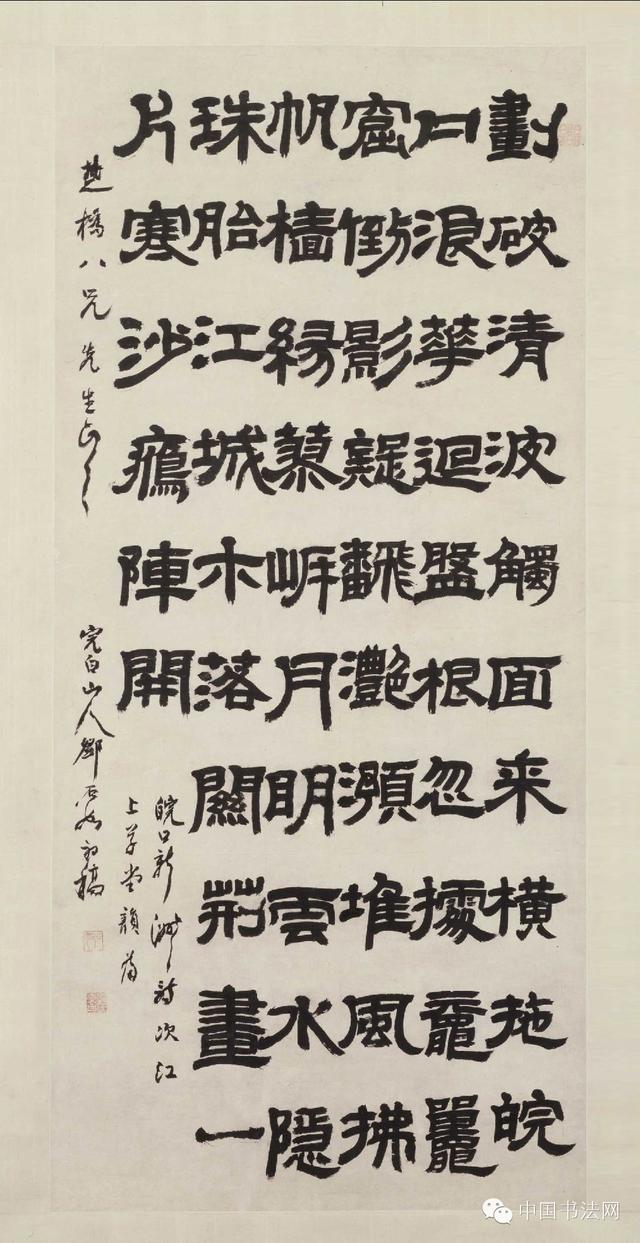 劃破清波觸面来橫拖皖
口浪華迴盤根忽據黿鼉
窟倒影疑飜灔澦堆風拂
帆檣緣蓼岸月明雲水隱
珠胎江城木落關荊畫一
片寒沙鴈陣開
皖口新洲詩次江
上草堂韻
楚橋八兄先生正之
完白山人鄧石如初稿
中国书法网